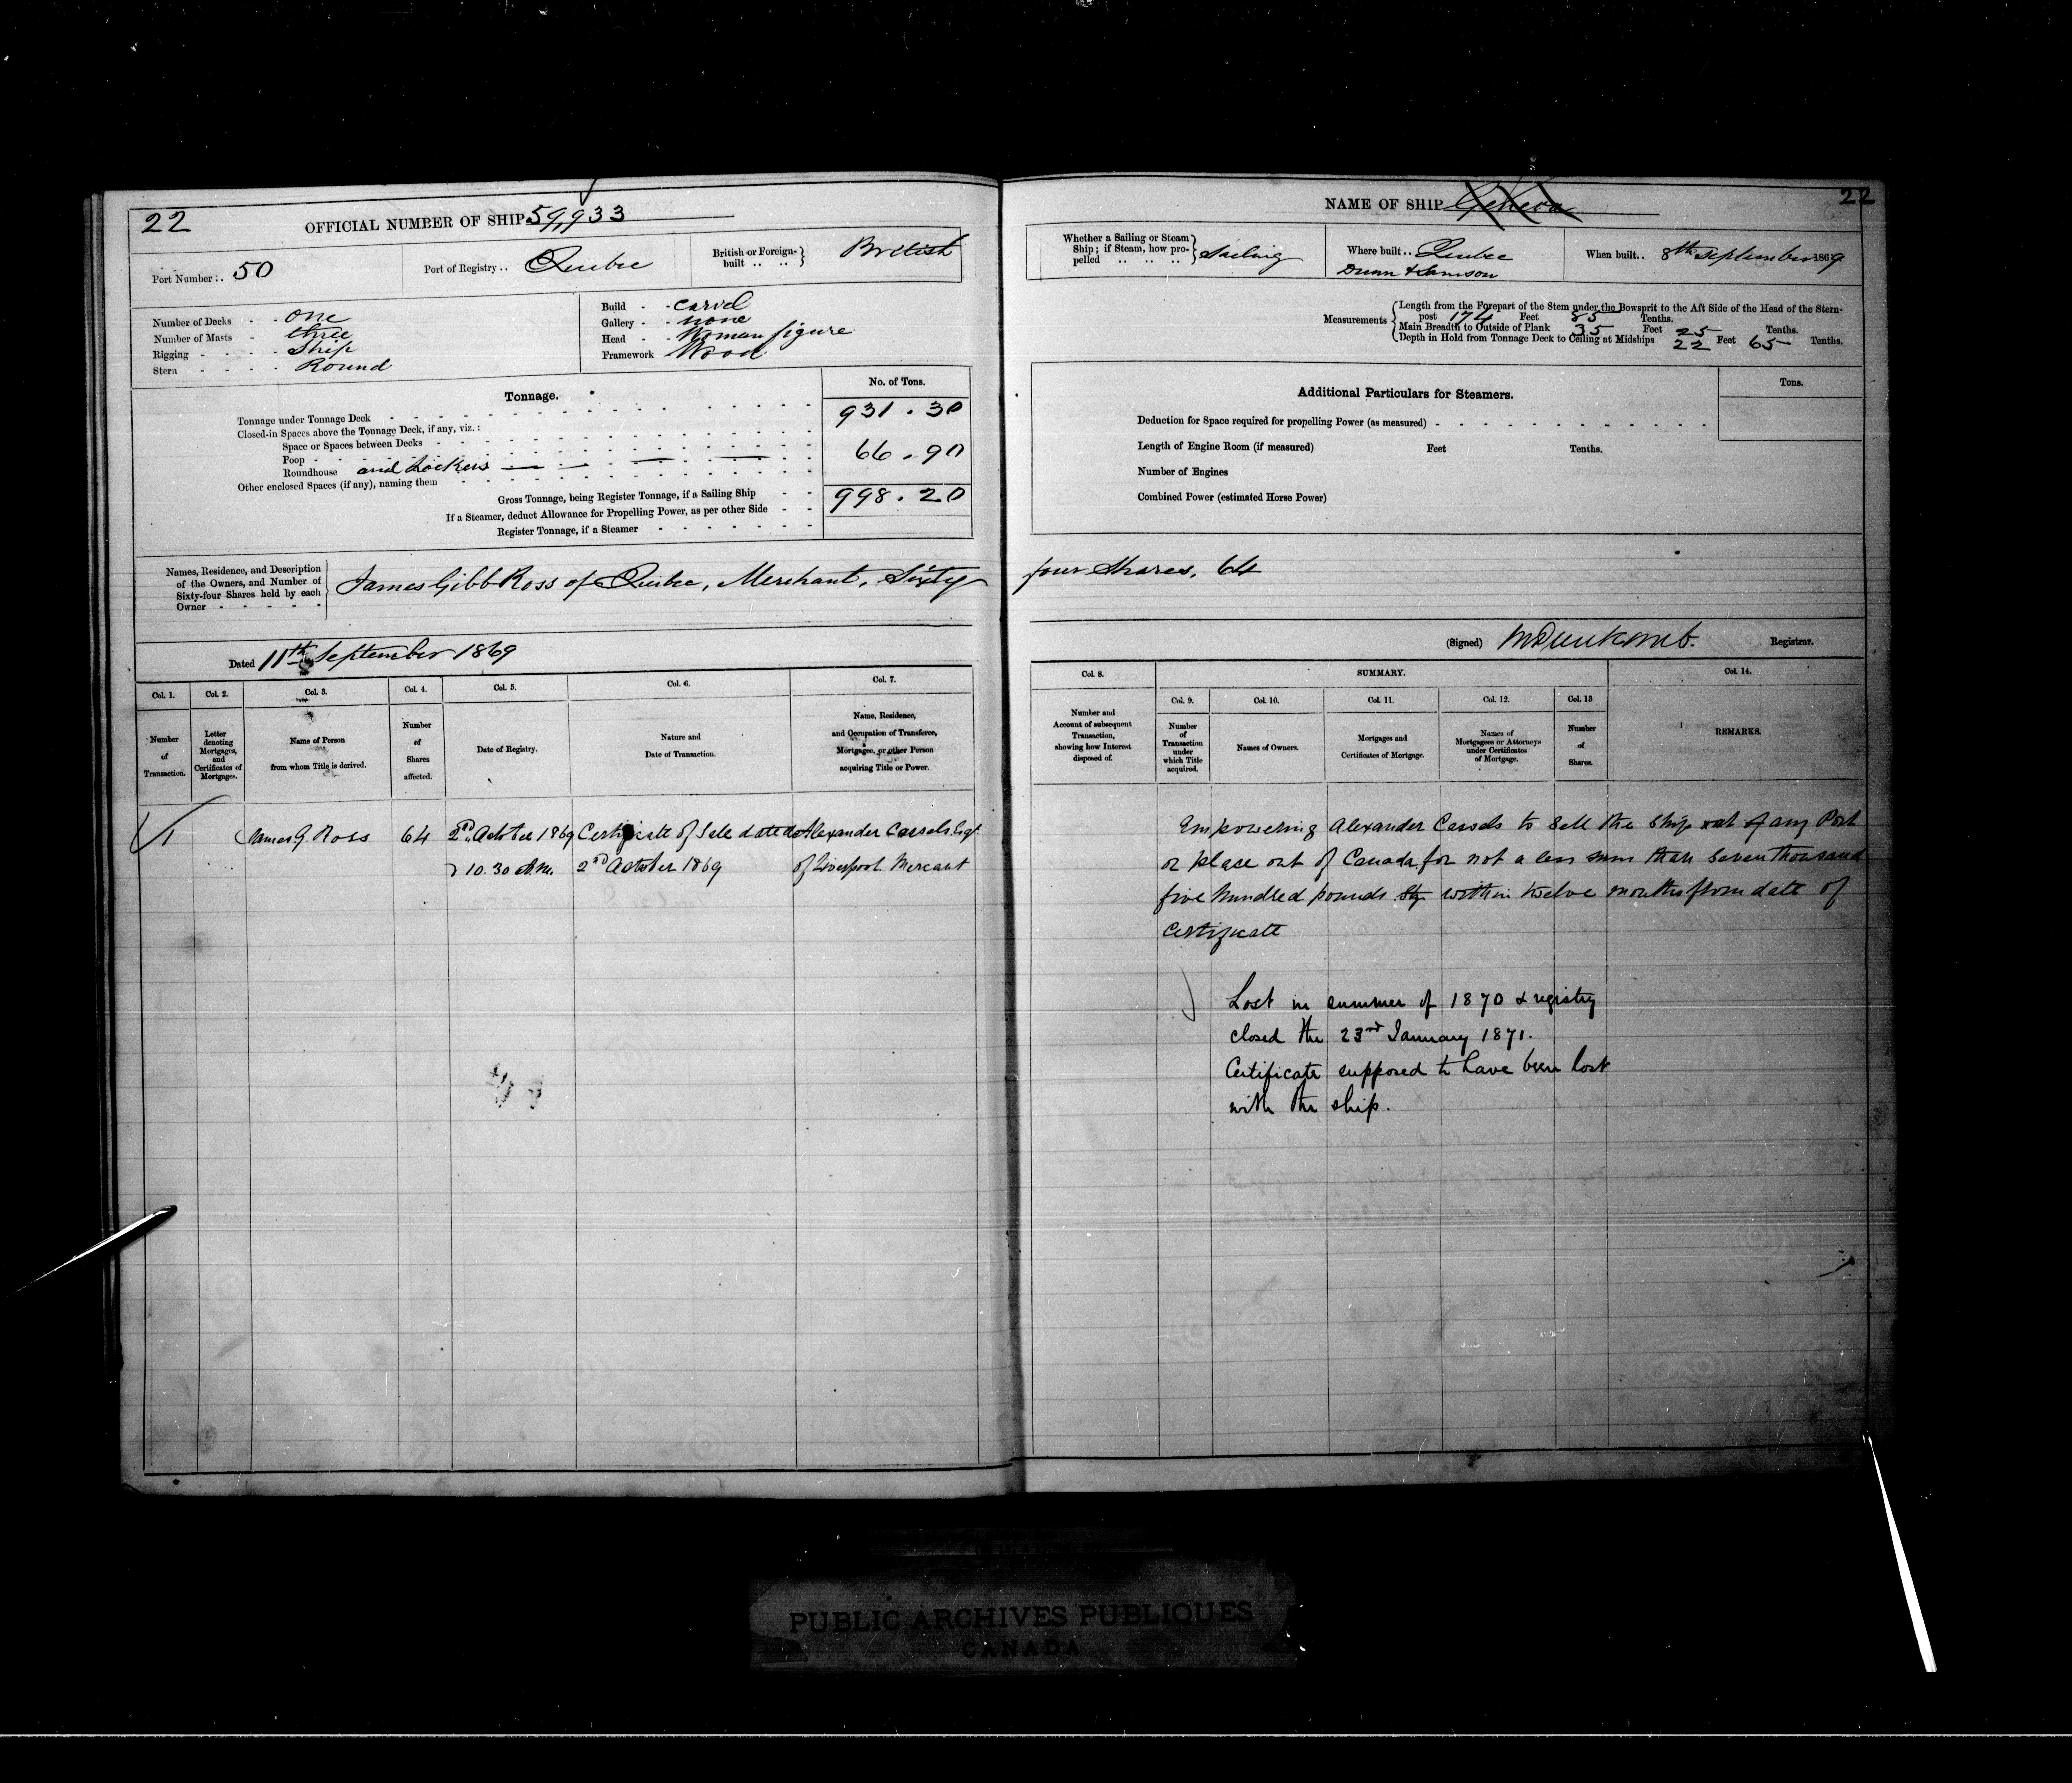 22
OFFICIAL NUMBER OF SHIP 59,933
Port Number .. 50
Port of Registry .. Quebec
British or Foreign-built .. .. British
Number of Decks - - one
Number of Masts - three
Rigging - - - - Ship
Stern - - - - Round
Build - - carvel
Gallery - - none
Head - - Woman figure
Framework Wood
Tonnage.
No. of Tons.
Tonnage under Tonnage Deck 931.30
Closed-in Spaces above the Tonnage Deck, if any, viz.:
Space or Spaces between Decks
Poop
Roundhouse and Lockers 66.90
Other enclosed Spaces (if any), naming them
Gross Tonnage, being Register Tonnage, if a Sailing Ship 998.20
If a Steamer, deduct Allowance for Propelling Power, as per other Side
Register Tonnage, if a Steamer
Names, Residence, and Description
of the Owners, and Number of
Sixty-four Shares held by each
Owner
James Gibb Ross of Quebec, Merchant, Sixty
Dated 11th September 1869
Col. 1. Col. 2. Col. 3. Col. 4. Col. 5. Col. 6. Col. 7.
Number of Transaction.
Letter denoting Mortgages, and Certificates of Mortgages.
Name of Person from whom Title is derived.
Number of Shares affected.
Date of Registry.
Nature and Date of Transaction.
Name, Residence, and Occupation of Transferee, Mortgagee, or other Person acquiring Title or Power.
1 James G. Ross 64 2nd October 1869 Certificate of Sale dated Alexander Cassels Esqr.
10.30 A.M. 2nd October 1869 of Liverpool Mercant
NAME OF SHIP Geneva
22
Whether a Sailing or Steam
Ship; if Steam, how pro-
pelled .. .. ..
Sailing
Where built .. Quebec
Dunn & Samson
When built .. 8th September 1869
Measurements
Length from the Forepart of the Stem under the Bowsprit to the Aft Side of the Head of the Stern-
post 174 Feet 85 Tenths.
Main Breadth to Outside of Plank 35 Feet 25 Tenths.
Depth in Hold from Tonnage Deck to Ceiling at Midships 22 Feet 65 Tenths.
Additional Particulars for Steamers.
Tons.
Deduction for Space required for propelling Power (as measured)
Length of Engine Room (if measured) Feet Tenths.
Number of Engines
Combined Power (estimated Horse Power)
four Shares, 64
(Signed) Registrar.
Col. 8. SUMMARY. Col. 14.
Col. 9. Col. 10. Col. 11. Col. 12. Col. 13
Number and Account of subsequent Transaction, showing how Interest disposed of.
Number of Transaction under which Title acquired.
Names of Owners.
Mortgages and Certificates of Mortgage.
Names of Mortgagees or Attorneys under Certificates of Mortgage.
Number of Shares.
REMARKS.
Empowering Alexander Cassels to Sell the Ship at any Port
or place out of Canada for not a less sum than Seven thousand
five hundred pounds Stg within twelve months from date of
Certificate
Lost in summer of 1870 & registry
closed the 23rd January 1871.
Certificate supposed to have been lost
with the ship.
PUBLIC ARCHIVES PUBLIQUES
CANADA